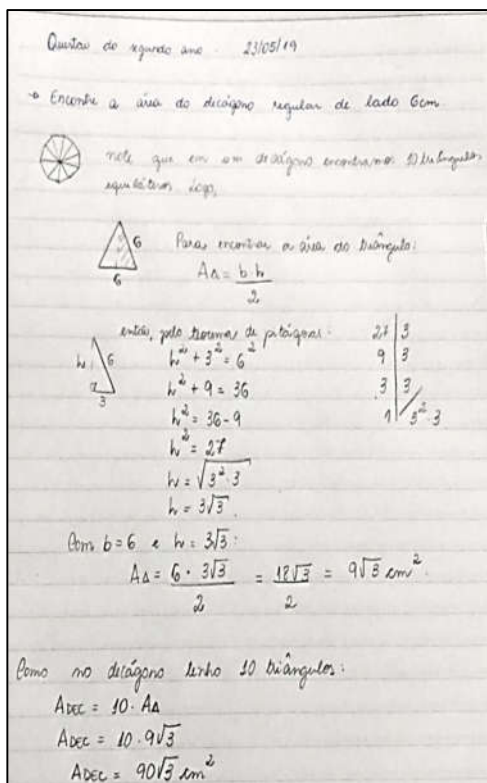 Questão do segundo ano. 23/05/19
Encontre a área do decágono regular de lado 6cm
note que em um decágono encontramos 10 triângulos
equiláteros. Logo,
6
6
Para encontrar a área do triângulo:
A∆ = b·h
2
então, pelo teorema de pitágoras:
h 6
3
h² + 3² = 6²
h² + 9 = 36
h² = 36-9
h² = 27
h = √3²·3
h = 3√3
27 | 3
9 | 3
3 | 3
1 | 3²·3
Com b=6 e h = 3√3:
A∆ = 6 · 3√3 = 18√3 = 9√3 cm².
2 2
Como no decágono tenho 10 triângulos:
ADEC = 10·A∆
ADEC = 10·9√3
ADEC = 90√3 cm²